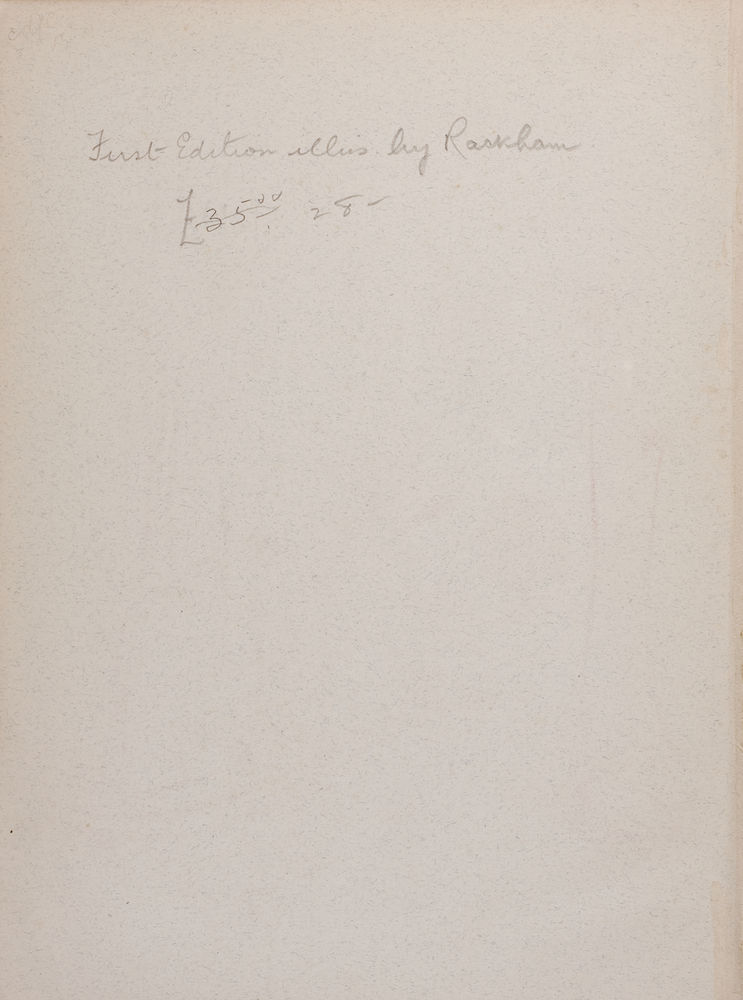 First Edition illus by Rackham
£35.00 28-